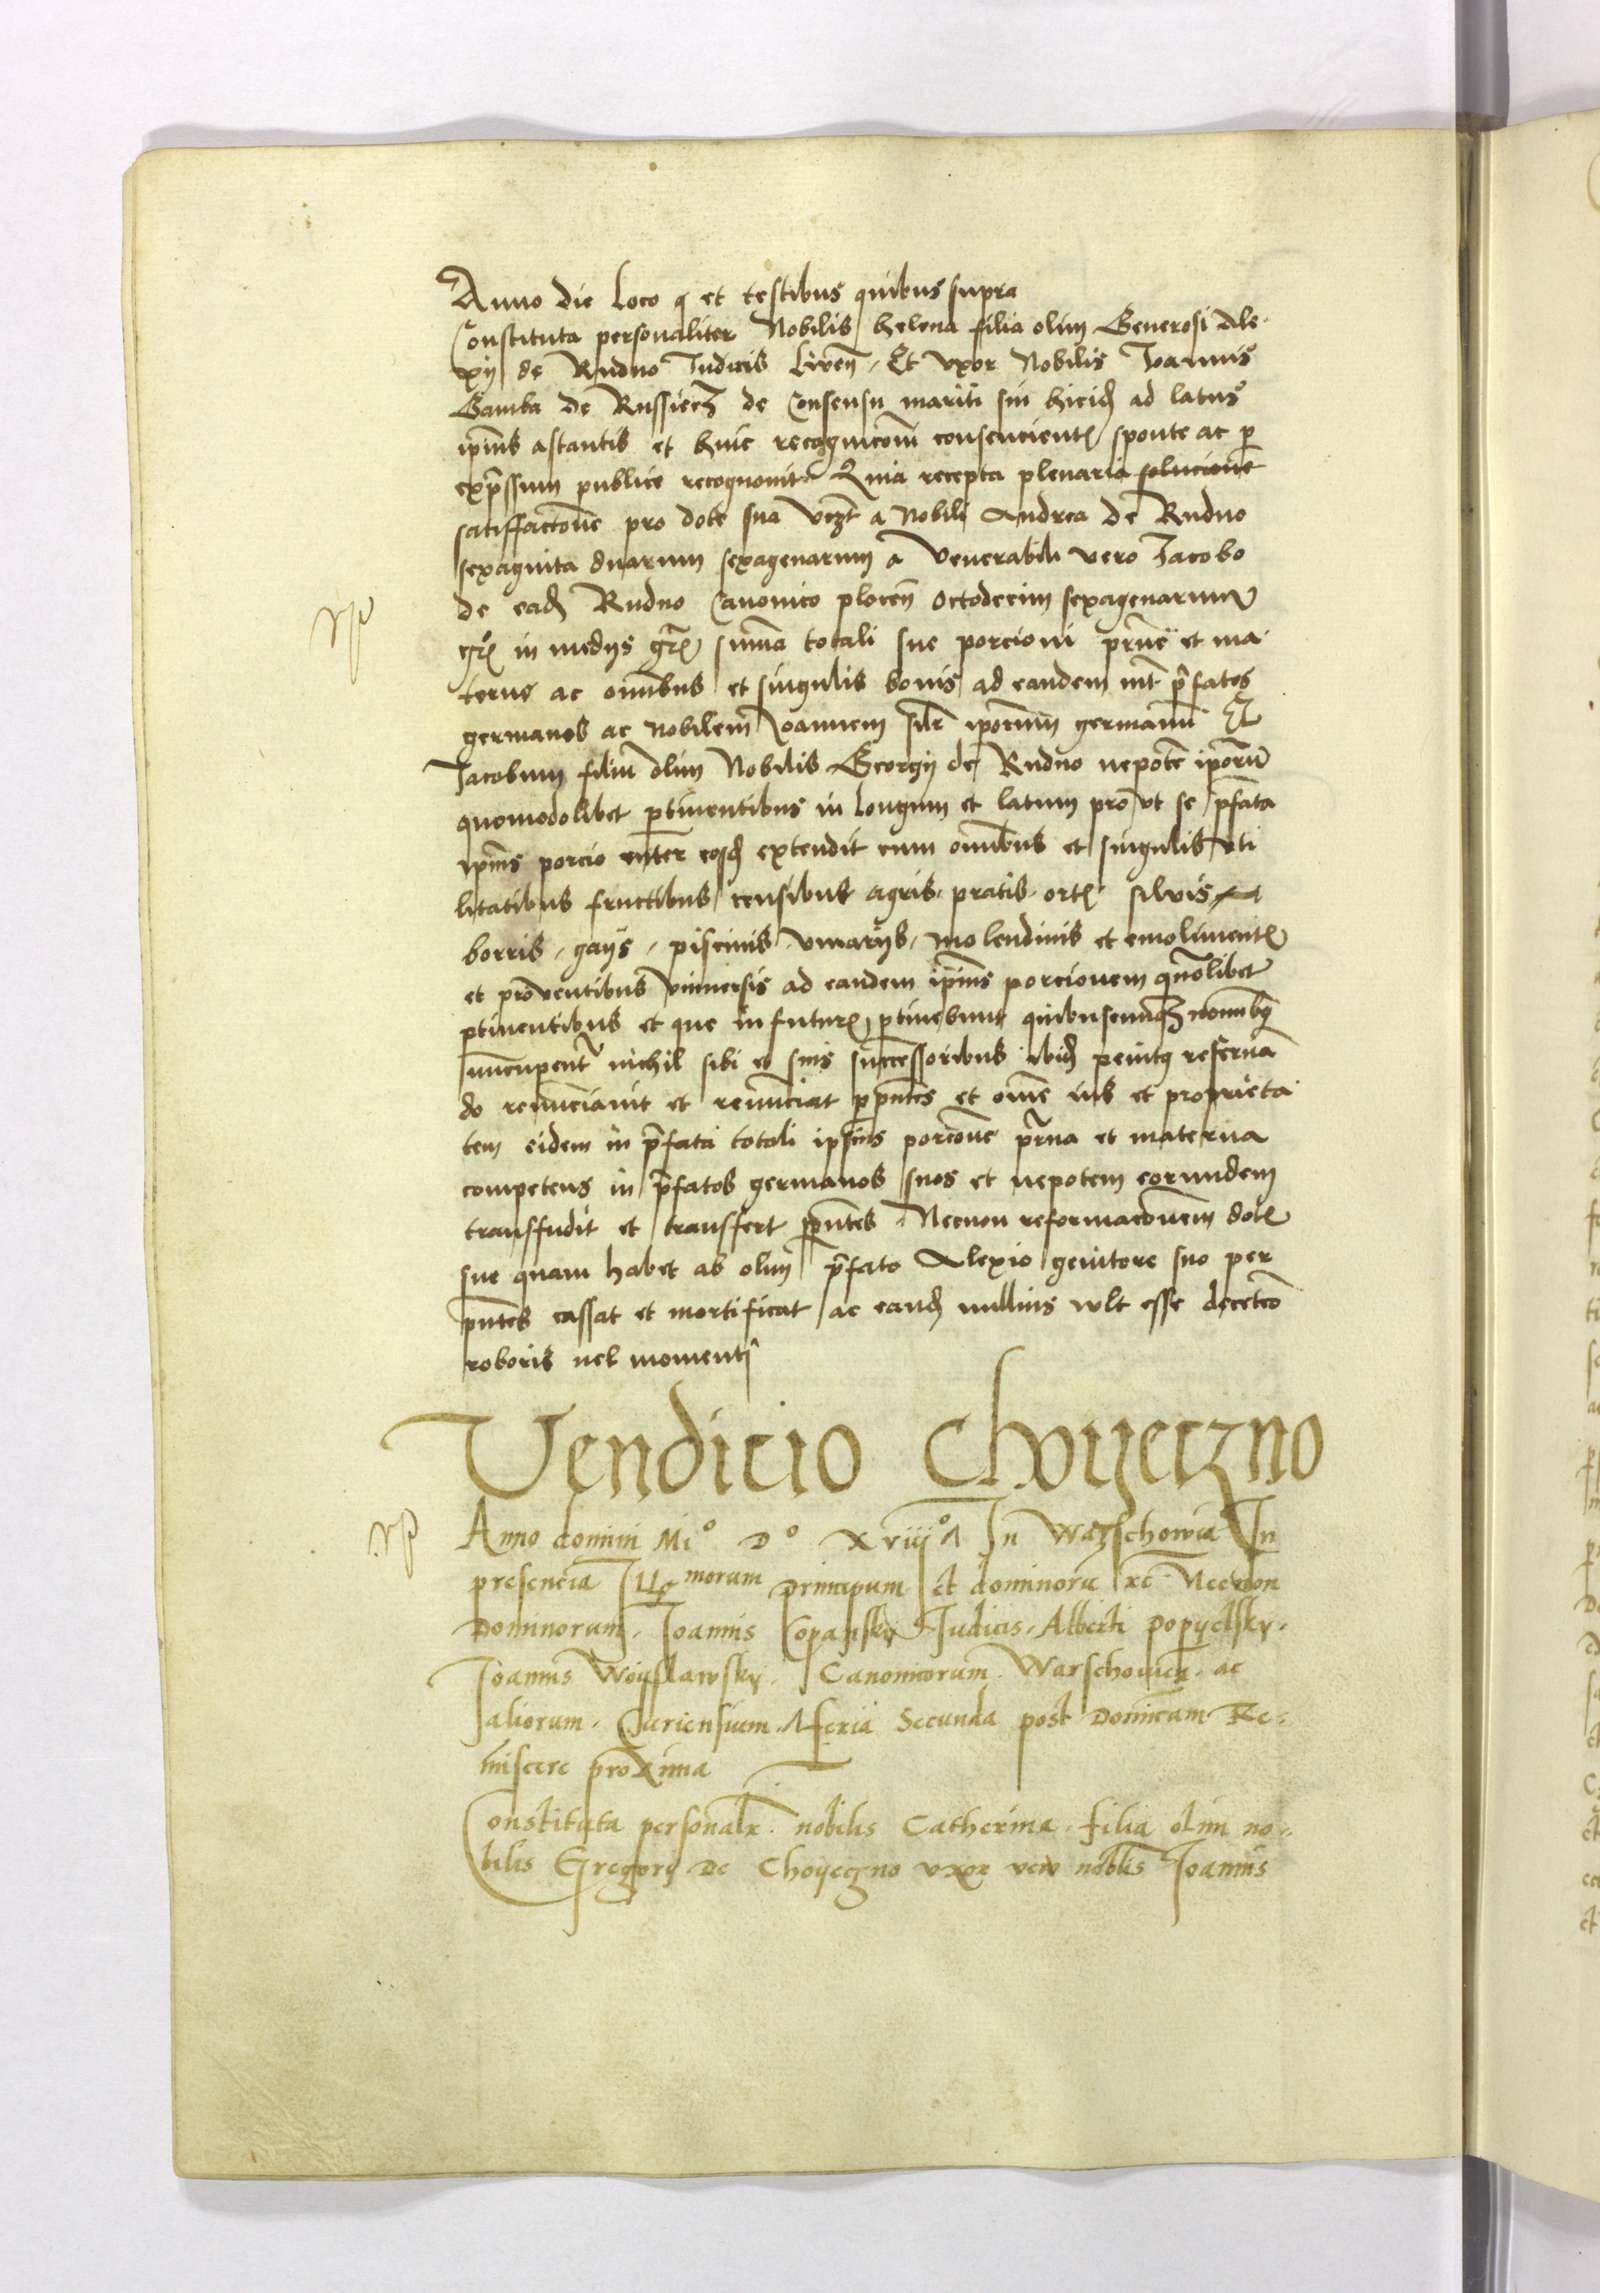 Anno die Loco q et testibus quibus supra
Constituta personaliter Nobilis helena filia olim Generosi Ale-
xy de Rudno Iudicis Liven. Et vxor Nobilis Joannis
Gamba de Russiecz de Consensu mariti sui hicid ad latus
ipius astantis et huic recogniconi consencient sponte ac p
exprssum publice recognouit Quia recepta plenaria solucione
satiffactone pro dote sua vczt a Nobili Andrea de Rudno
sexaginta duarum sexagenarum a Venerabili vero Jacobo
de ead Rudno Canonico plocen Octodecim sexagenarum
gr in medys gr suma totali sue porcioni prne et ma-
terne ac omnibus et singulis bonis ad eandem int prfatos
germanos ac Nobilem Joannem silr iporum germanu Et
Jacobum filiu olim Nobilis Georgy de Rudno nepote iporu
quomodolibet ptinentibus in longum et latum pro vt se pfata
ipius porcio enter eosd extendit cum omibus et singulis vti
litatibus fructibus censibus agris pratis ort siluis
borris gays piscinis vinarys molendinis et emoliment
et prouentibus vniuersis ad eandem ipius porcionem qmolibet
ptinentibus et que in futur ptinebunt quibuscunqz nominibq
nuncupent nichil sibi et suis successoribus ibid penitq reserua
do renuncianit et renunciat p pntes et ome ius et proprieta
tem eidem in prfata totali ipsius porcone prna et materna
competens in prfatos germanos suos et nepotem eorundem
transfudit et transfert p pntes Necnon reformaconem dot
sue quam habet ab olim prfato Alexio genitore suo per
pntes cassat et mortificat ac eand nullius vlt esse deceteo
roboris uel momenti
Vendicio Choyeczno
Anno domini Mi° D° XViii° In Warschowia In
presencia Illmorum principum et dominoru xc Necnon
Dominorum. Joannis Copansky Iudicis. Alberti popyelsky.
Joannis Woysslawsky. Canonicorum. Warschouien. ac
aliorum. Curiensium. feria Secunda post Dominicam Re-
miscere proxima
Constituta personalr. nobilis Catherina. filia olim no-
bilis Gregory De Choyeczno vxor vero nobilis Joannis